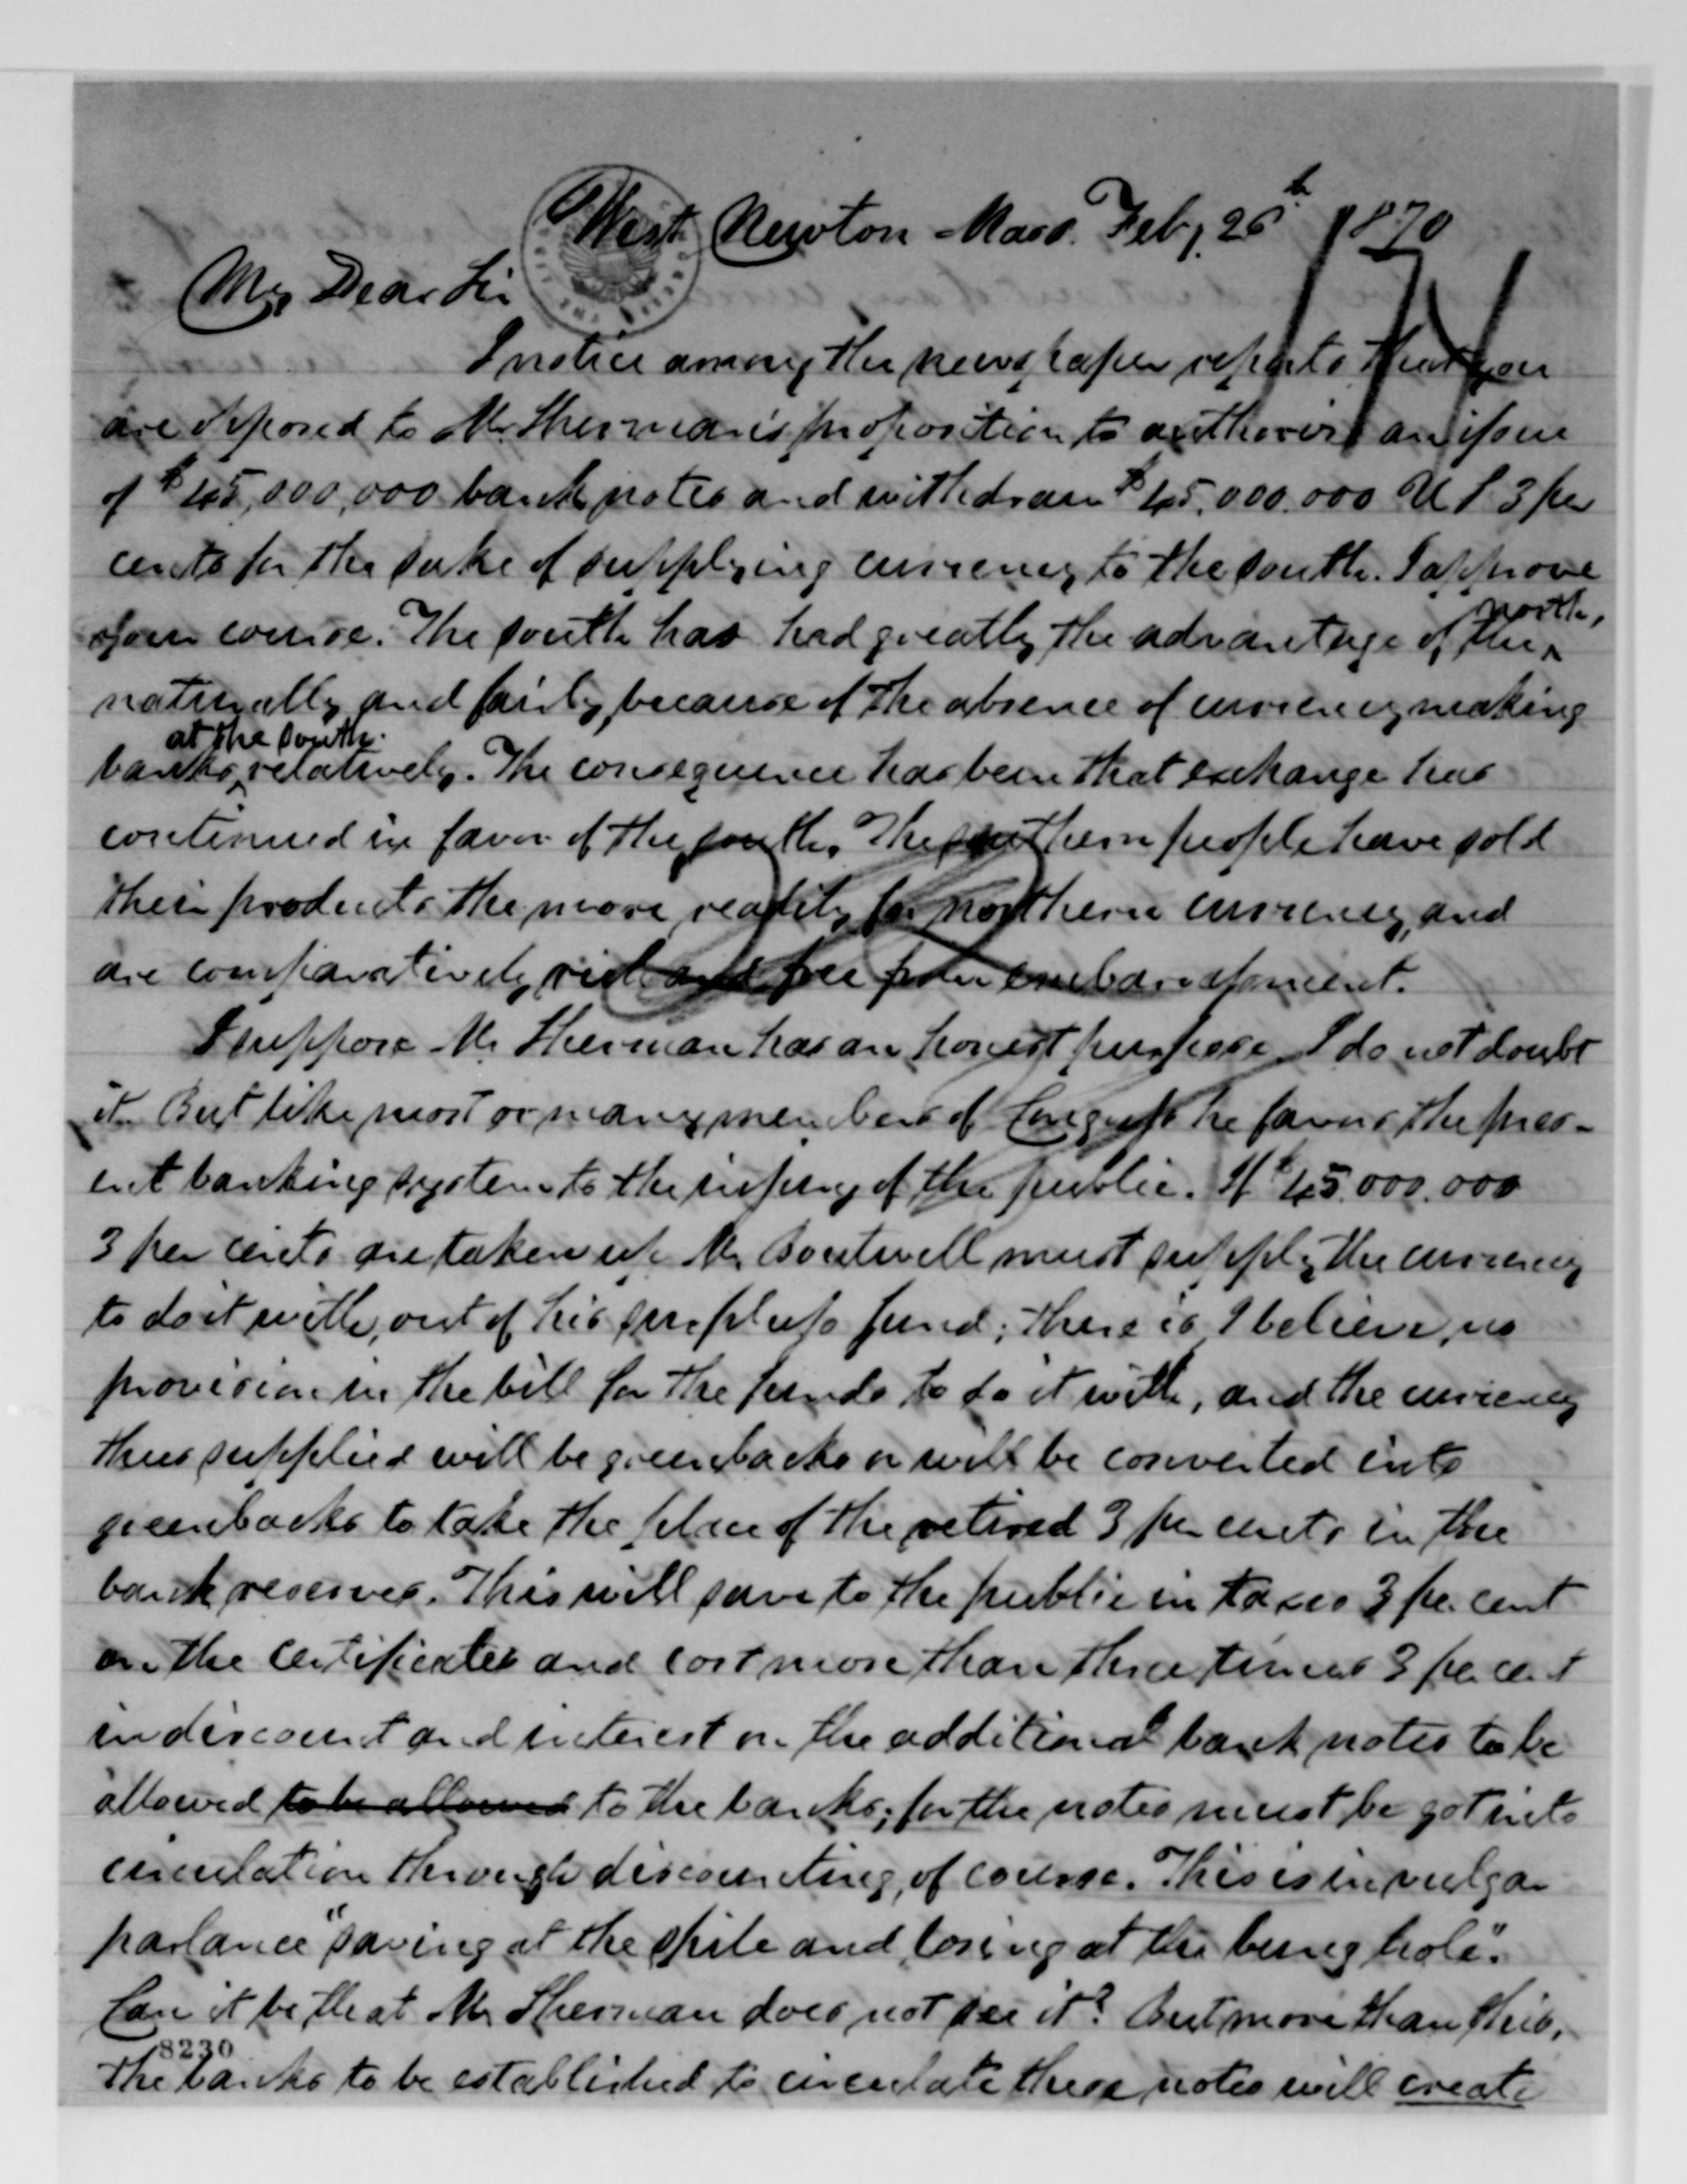 West Newton Mass. Feby. 26th 1870
My Dear Sir
I notice among the newspaper reports that you
are opposed to Mr Sherman's proposition to authorise an issue
of $45,000,000 bank notes and withdraw $45,000,000 U S 3 per
cents for the sake of supplying currency to the south. I approve
your course. The south has had greatly the advantage of the north,
naturally and fairly, because of the absence of currency making
banks at the south relatively. The consequence has been that exchange has
continued in favor of the south. The southern people have sold
their products the more readily for northern currency, and
are comparatively rich and free from embarrassment.
I suppose Mr Sherman has an honest purpose. I do not doubt
it. But like most or many members of Congress he favors the pres-
ent banking system to the injury of the public. If $45,000,000
3 per cents are taken up Mr Boutwell must supply the currency
to do it with, out of his surplus fund; there is I believe, no
provision in the bill for the funds to do it with, and the currency
thus supplied will be greenbacks or will be converted into
greenbacks to take the place of the retired 3 per cents in the
bank reserves. This will save to the public in taxes 3 per cent
on the certificates and cost more than three times 3 per cent
in discount and interest on the additional bank notes to be
allowed to be allowed to the banks; for the notes must be got into
circulation through discounting, of course. This is in vulgar
parlance "saving at the spile and losing at the bung hole".
Can it be that Mr Sherman does not see it? But more than this,
8230
The banks to be established to circulate these notes will create